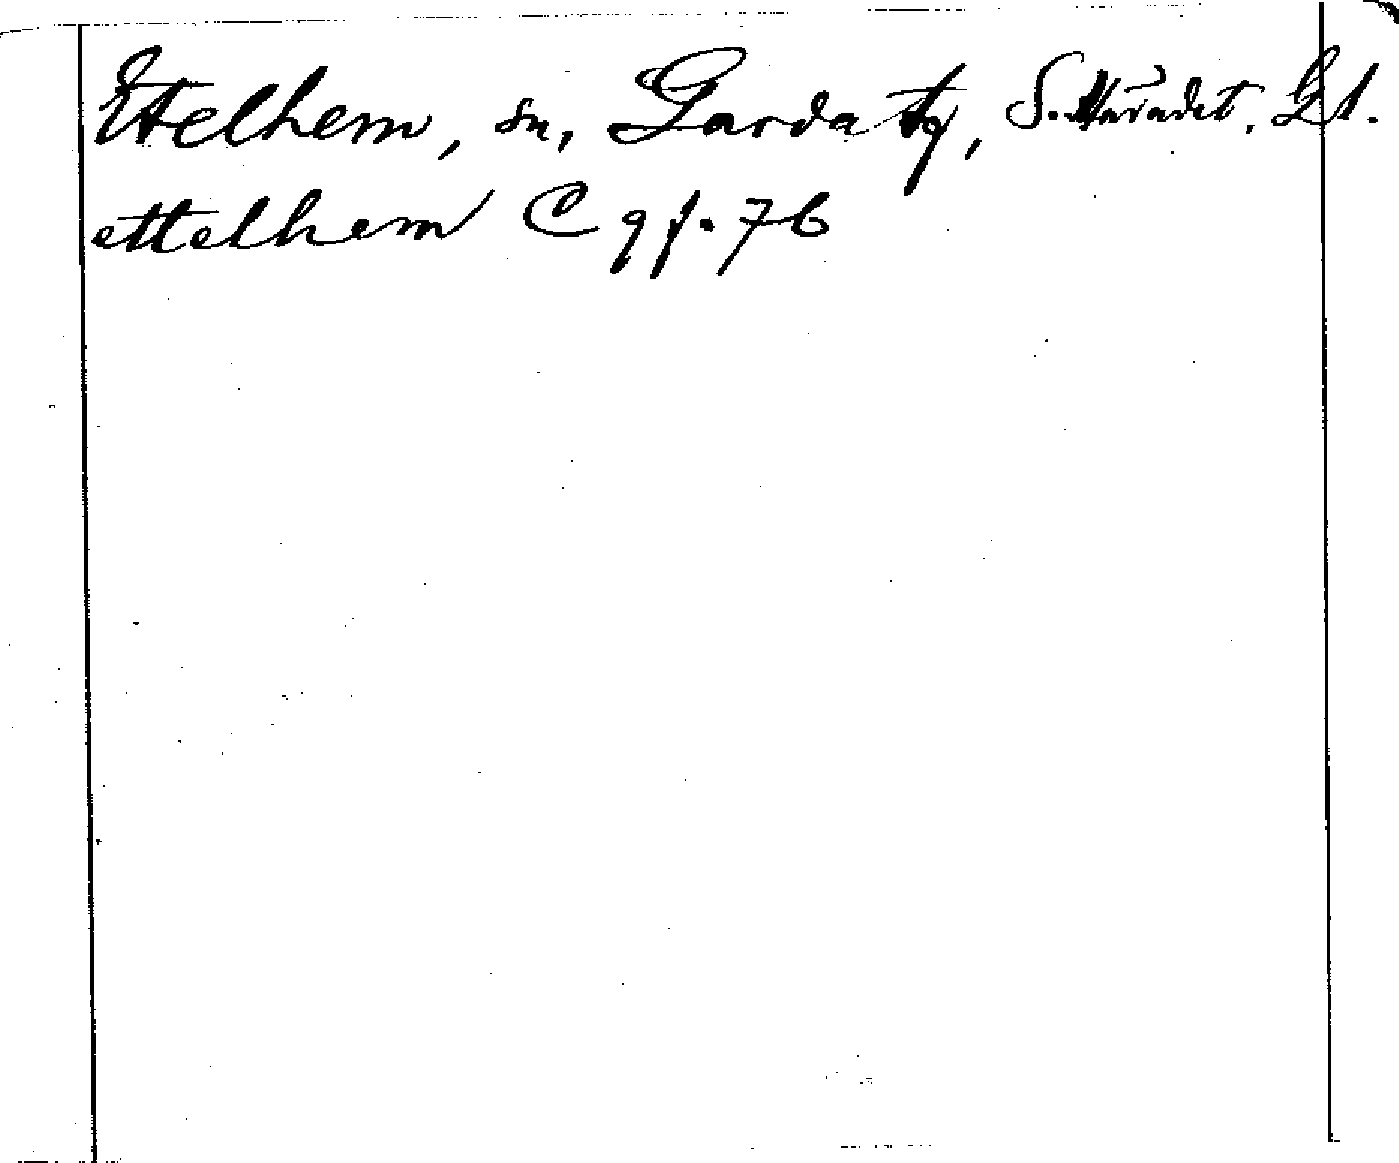 Etelhem, sn, Garda tg, S. Häradet. Gtl.
ettelhem C 9 f. 76